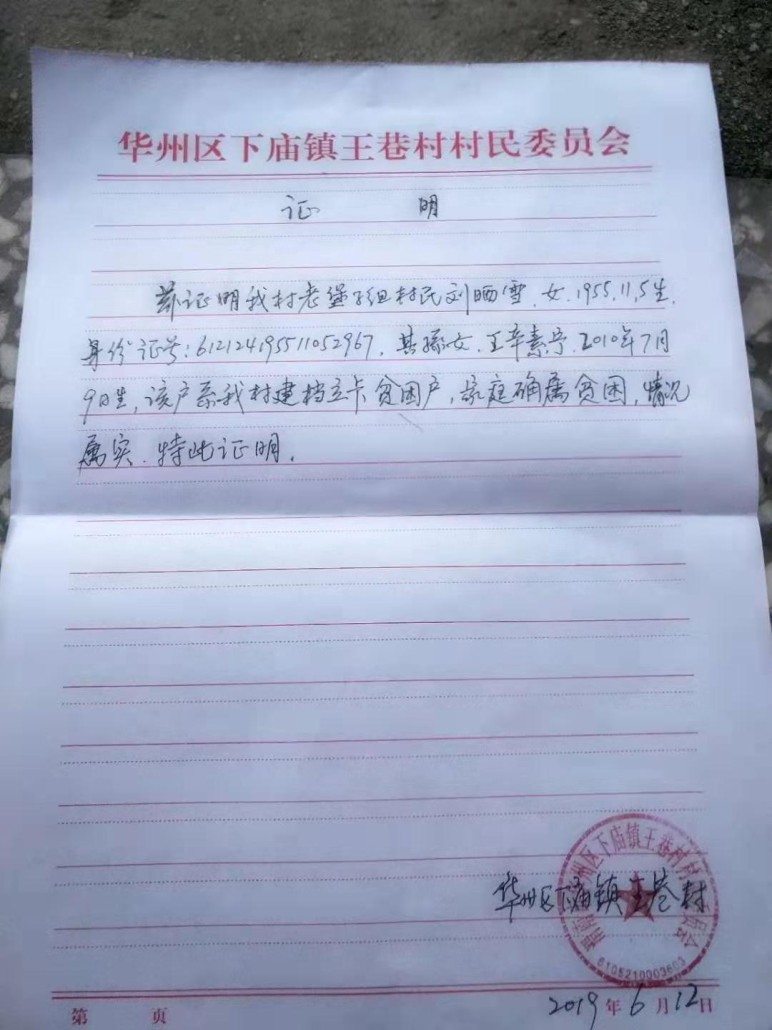 华州区下庙镇王巷村村民委员会
证 明
兹证明我村老堡子组村民刘晒雪.女.1955.11.5生.
身份证号:612124195511052967.其孙女.王辛素.2010年7月
9日生,该户系我村建档立卡贫困户,家庭确属贫困,情况
属实.特此证明.
华州区下庙镇王巷村
华州区下庙镇王巷村村 员会
6105210003603
2019年6月12日
第 页